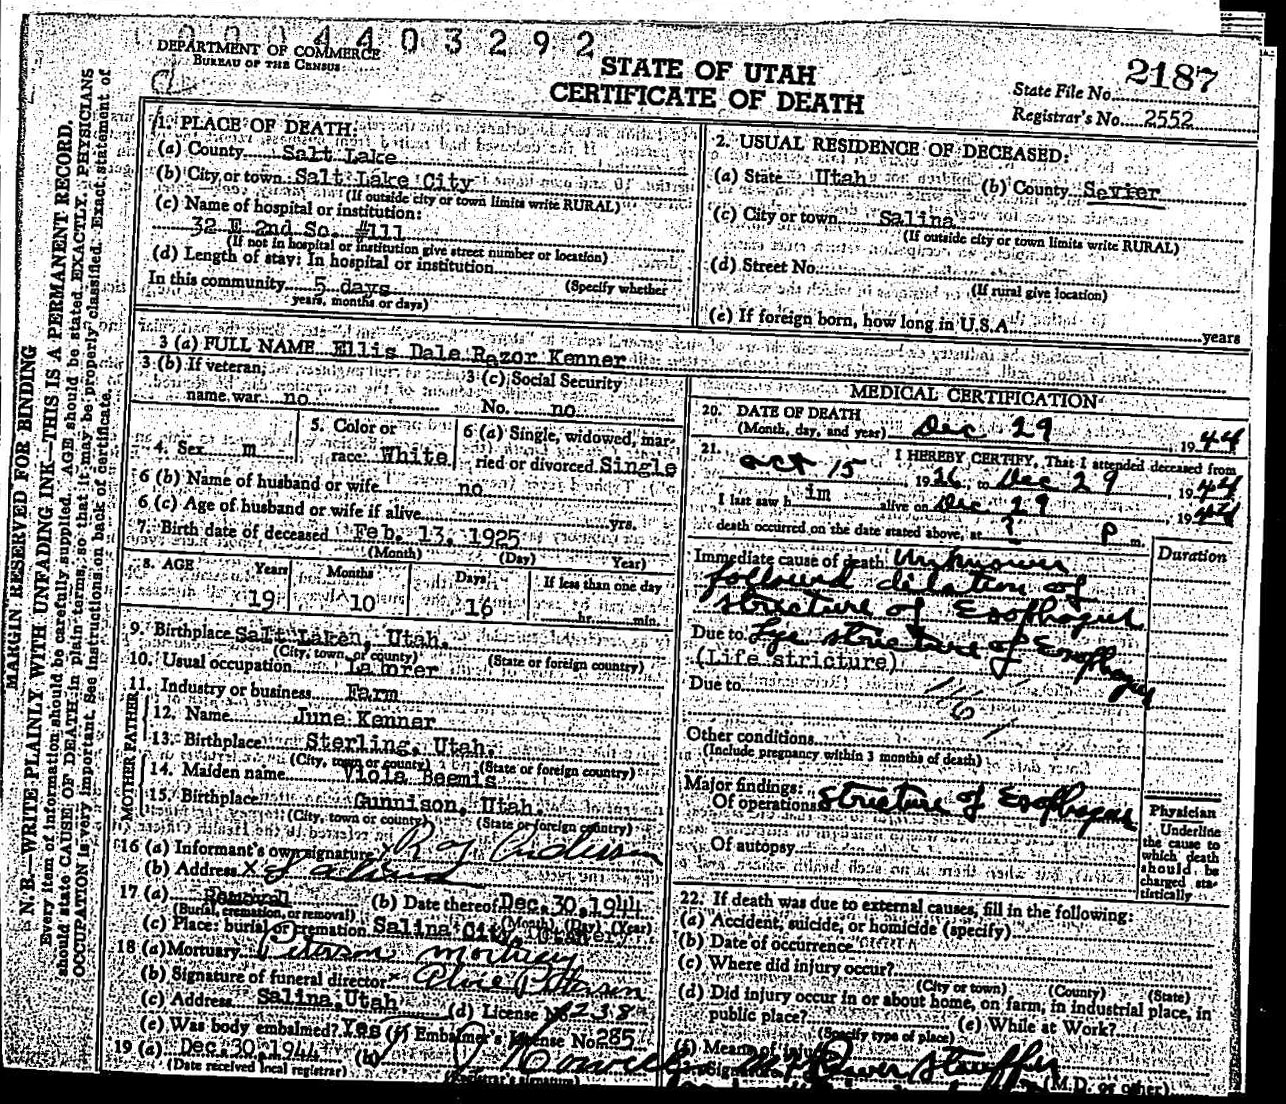 0 0 0 4 4 0 3 2 9 2
DEPARTMENT OF COMMERCE
BUREAU OF THE CENSUS
STATE OF UTAH
CERTIFICATE OF DEATH
State File No. 2187
Registrar's No. 2552
MARGIN RESERVED FOR BINDING
N. B.—WRITE PLAINLY WITH UNFADING INK—THIS IS A PERMANENT RECORD.
Every item of information should be carefully supplied. AGE should be stated EXACTLY. PHYSICIANS
should state CAUSE OF DEATH in plain terms, so that it may be properly classified. Exact statement of
OCCUPATION is very important. See instructions on back of certificate.
1. PLACE OF DEATH:
(a) County Salt Lake
(b) City or town Salt Lake City
(If outside city or town limits write RURAL)
(c) Name of hospital or institution:
32 E 2nd So. #111
(If not in hospital or institution give street number or location)
(d) Length of stay: In hospital or institution
In this community 5 days (Specify whether
years, months or days)
2. USUAL RESIDENCE OF DECEASED:
(a) State Utah (b) County Sevier
(c) City or town Salina
(If outside city or town limits write RURAL)
(d) Street No.
(If rural give location)
(e) If foreign born, how long in U.S.A. years
3 (a) FULL NAME Ellis Dale Razor Kenner
3 (b) If veteran, name war no
3 (c) Social Security No. no
4. Sex m
5. Color or race White
6 (a) Single, widowed, married or divorced Single
6 (b) Name of husband or wife no
6 (c) Age of husband or wife if alive yrs.
7. Birth date of deceased Feb. 13, 1925
(Month) (Day) Year)
8. AGE Years Months Days If less than one day
19 10 16 hr. min.
9. Birthplace Salt Laken, Utah.
(City, town, or county) (State or foreign country)
10. Usual occupation Laborer
11. Industry or business Farm
FATHER
12. Name June Kenner
13. Birthplace Sterling, Utah.
(City, town or county) (State or foreign country)
MOTHER
14. Maiden name Viola Beemis
15. Birthplace Gunnison, Utah.
(City, town or county) (State or foreign country)
16 (a) Informant's own signature x
(b) Address x Salina
17 (a) Removal (b) Date thereof Dec. 30, 1944
(Burial, cremation, or removal) (Month) (Day) (Year)
(c) Place: burial or cremation Salina City,
18 (a) Mortuary Peterson Mortuary
(b) Signature of funeral director
(c) Address Salina, Utah (d) License No 238
(e) Was body embalmed? Yes (f) Embalmer's License No 285
19 (a) Dec. 30, 1944 (b)
(Date received local registrar) (Registrar's signature)
MEDICAL CERTIFICATION
20. DATE OF DEATH
(Month, day, and year) Dec 29 1944
21. I HEREBY CERTIFY, That I attended deceased from
Oct 15, 1936, to Dec 29, 1944
I last saw him alive on Dec 29, 1944
death occurred on the date stated above, at ? P m.
Duration
Immediate cause of death Unknown
followed dilation of
stricture of Esophagus
Due to Lye stricture of Esophagus
(Life stricture)
Due to
Other conditions
(Include pregnancy within 3 months of death)
Major findings:
Of operations stricture of Esophagus
Of autopsy
Physician
Underline
the cause to
which death
should be
charged sta-
tistically
22. If death was due to external causes, fill in the following:
(a) Accident, suicide, or homicide (specify)
(b) Date of occurrence
(c) Where did injury occur?
(City or town) (County) (State)
(d) Did injury occur in or about home, on farm, in industrial place, in
public place?
(Specify type of place) (e) While at Work?
(f) Means of injury
Signature
(M.D. or other)